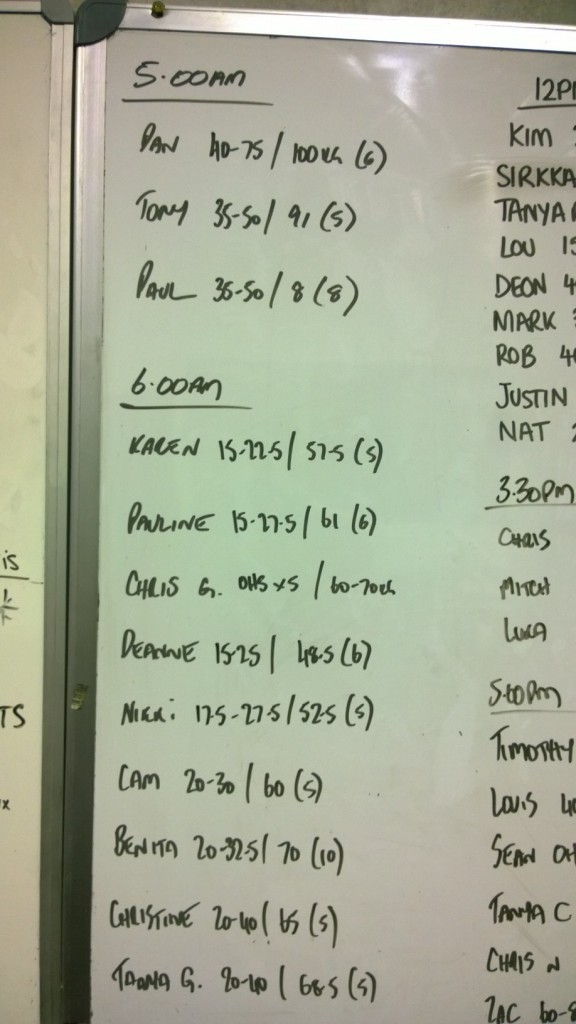 5.00AM
DAN 40-75/100KG (6)
TONY 35-50/91 (5)
PAUL 35-50/8 (8)
6.00AM
KAREN 15-22.5/57.5 (5)
PAULINE 15-27.5/61 (6)
CHRIS G. OHS x5/60-70KG
DEANNE 15-25/48.5 (6)
NIKKI 17.5-27.5/52.5 (5)
CAM 20-30/60 (5)
BENITA 20-32.5/70 (10)
CHRISTINE 20-40/65 (5)
G. 20-40/68.5 (5)
12PM
KIM
SIRKKA
TANYA
LOU 15
DEON 4
MARK
ROB 4
JUSTIN
NAT 2
3.30PM
CHRIS
MITCH
LUKA
5:00PM
TIMOTHY
LOUIS 40
SEAN OH
TANYA C
CHRIS N
ZAC 60-8
is
TS
x